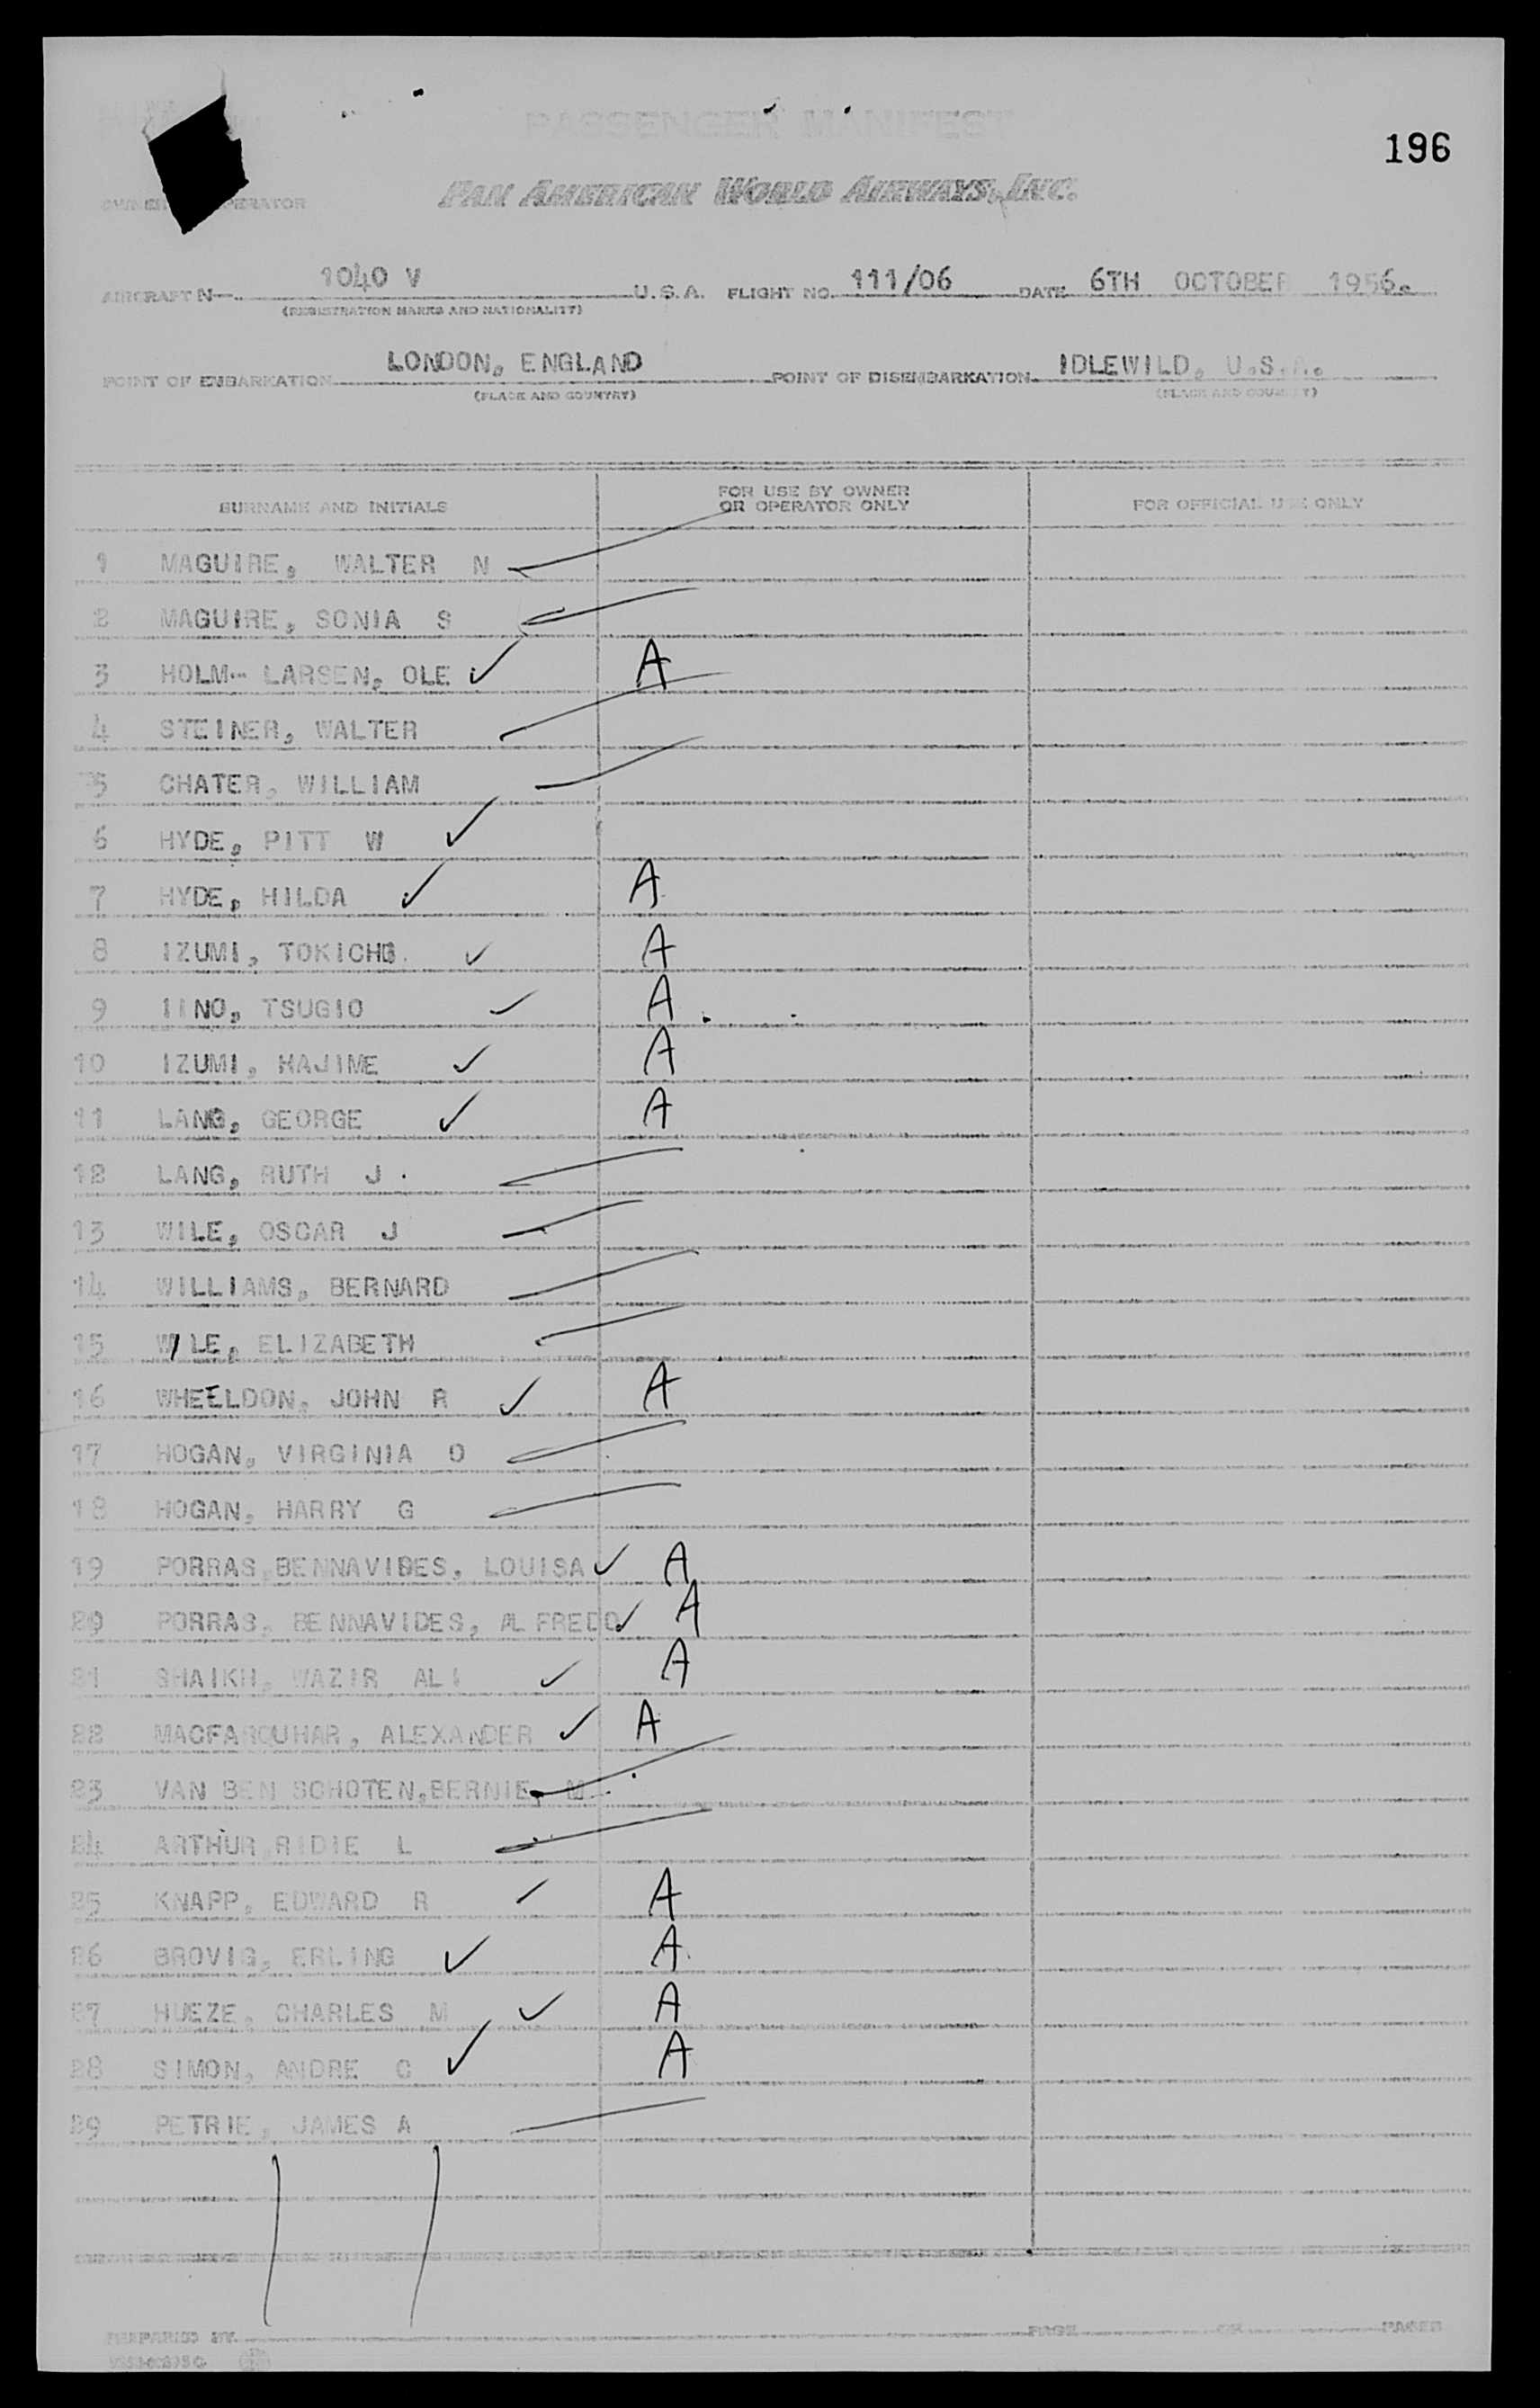 PASSENGER MANIFEST
196
OPERATOR
PAN AMERICAN WORLD AIRWAYS, INC.
AIRCRAFT N- 1040 V U.S.A. FLIGHT NO. 111/06 DATE 6TH OCTOBER 1956.
(REGISTRATION MARKS AND NATIONALITY)
POINT OF EMBARKATION LONDON, ENGLAND POINT OF DISEMBARKATION IDLEWILD, U.S.A.
(PLACE AND COUNTRY) (PLACE AND COUNTRY)
SURNAME AND INITIALS FOR USE BY OWNER OR OPERATOR ONLY FOR OFFICIAL USE ONLY
1 MAGUIRE, WALTER N
2 MAGUIRE, SONIA S
3 HOLM-- LARSEN, OLE ✓ A
4 STEINER, WALTER
5 CHATER, WILLIAM
6 HYDE, PITT W ✓
7 HYDE, HILDA ✓ A
8 IZUMI, TOKICHO ✓ A
9 IINO, TSUGIO ✓ A
10 IZUMI, HAJIME ✓ A
11 LANG, GEORGE ✓ A
12 LANG, RUTH J
13 WILE, OSCAR J
14 WILLIAMS, BERNARD
15 WILE, ELIZABETH
16 WHEELDON, JOHN R ✓ A
17 HOGAN, VIRGINIA O
18 HOGAN, HARRY G
19 PORRAS BENNAVIDES, LOUISA ✓ A
20 PORRAS, BENNAVIDES, ALFREDO ✓ A
21 SHAIKH, WAZIR ALI ✓ A
22 MACFARQUHAR, ALEXANDER ✓ A
23 VAN BEN SCHOTEN, BERNIE, M
24 ARTHUR RIDIE L
25 KNAPP, EDWARD R ✓ A
26 BROVIG, ERLING ✓ A
27 HUEZE, CHARLES M ✓ A
28 SIMON, ANDRE C ✓ A
29 PETRIE, JAMES A
PREPARED BY PAGE OF PAGES